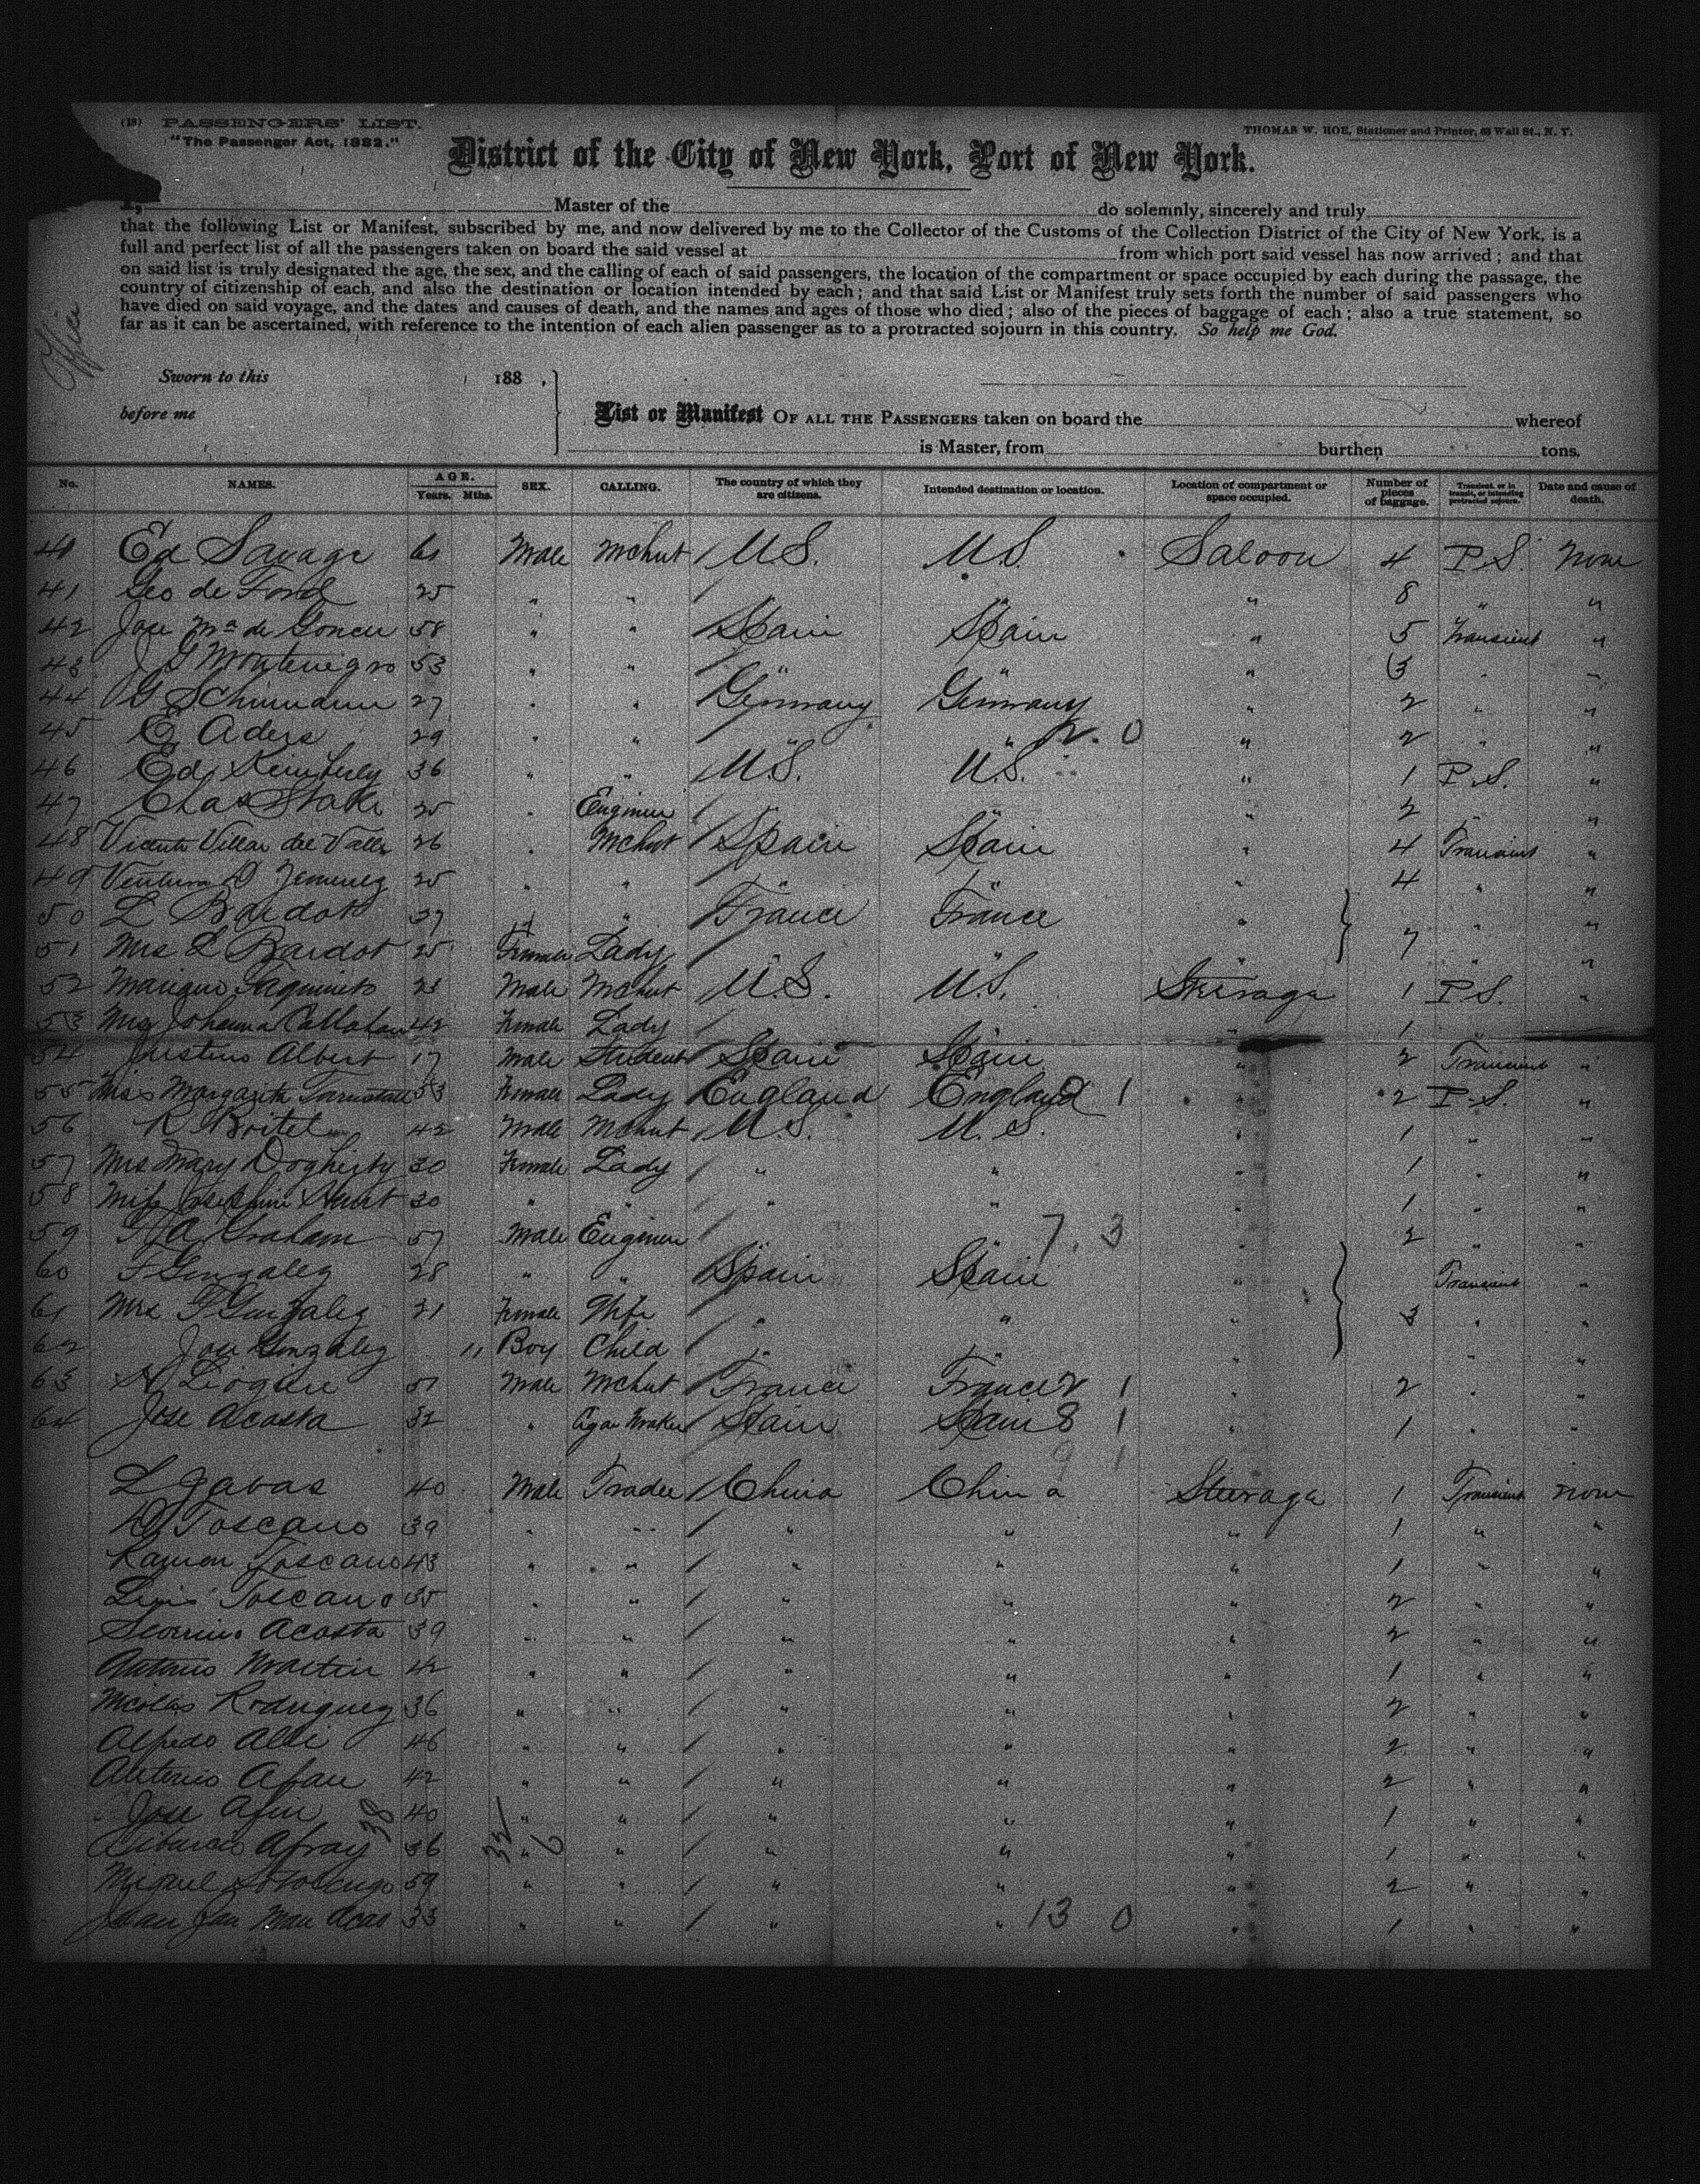 (13) PASSENGERS' LIST.
THOMAS W. HOE, Stationer and Printer, 63 Wall St., N. Y.
"The Passenger Act, 1882."
District of the City of New York, Port of New York.
I, Master of the do solemnly, sincerely and truly
that the following List or Manifest, subscribed by me, and now delivered by me to the Collector of the Customs of the Collection District of the City of New York, is a
full and perfect list of all the passengers taken on board the said vessel at from which port said vessel has now arrived; and that
on said list is truly designated the age, the sex, and the calling of each of said passengers, the location of the compartment or space occupied by each during the passage, the
country of citizenship of each, and also the destination or location intended by each; and that said List or Manifest truly sets forth the number of said passengers who
have died on said voyage, and the dates and causes of death, and the names and ages of those who died; also of the pieces of baggage of each; also a true statement, so
far as it can be ascertained, with reference to the intention of each alien passenger as to a protracted sojourn in this country. So help me God.
Office
Sworn to this 188 ,
before me
List or Manifest OF ALL THE PASSENGERS taken on board the whereof
is Master, from burthen tons.
No. NAMES. AGE. Years. Mths. SEX. CALLING. The country of which they are citizens. Intended destination or location. Location of compartment or space occupied. Number of pieces of baggage. Transient, or in transit, or intending protracted sojourn. Date and cause of death.
40 Ed Savage 61 Male Mchnt / U.S. U.S. Saloon 4 P.S. None
41 Geo de Ford 25 " " / " " " 8 " "
42 Jose Ma de 58 " " / Spain Spain " 5 Transient "
43 J G Montenegro 53 " " / " " " 3 " "
44 G 27 " " / Germany Germany " 2 " "
45 E Aders 29 " " / " " 2. 0 " 2 " "
46 Ed Kemberly 36 " " / U.S. U.S. " 1 P.S. "
47 Chas 25 " Engineer / " " " 2 " "
48 Vicente Villar del Valle 26 " Mchnt / Spain Spain " 4 Transient "
49 Ventura D 25 " " / " " " 4 " "
50 L Bardot 37 " " / France France " " "
51 Mrs L Bardot 25 Female Lady / " " " 7 " "
52 23 Male Mchnt / U.S. U.S. Steerage 1 P.S. "
53 Mrs Johanna Callahan 42 Female Lady / " " " 1 " "
54 Justino Albert 17 Male Student / Spain Spain " 2 Transient "
55 Miss Margarita 53 Female Lady / England England 1 " 2 P.S. "
56 R Boitel 42 Male Mchnt / U.S. U.S. " 1 " "
57 Mrs Mary Dogherty 30 Female Lady / " " " 1 " "
58 Miss Josephine 30 " " / " " " 1 " "
59 A Graham 57 Male Engineer / " " 7. 3 " 2 " "
60 F Gonzalez 28 " " / Spain Spain " Transient "
61 Mrs F Gonzalez 21 Female Wife / " " " 3 " "
62 Jose Gonzalez 11 Boy Child / " " " " "
63 51 Male Mchnt / France France 2 1 " 2 " "
64 Jose Acosta 32 " Cigar Maker / Spain Spain 8 1 " 1 " "
9 1
L 40 Male Trader / China China Steerage 1 Transient None
D Toscano 39 " " / " " " 1 " "
Ramon Toscano 43 " " / " " " 1 " "
Luis Toscano 35 " " / " " " 2 " "
Acosta 39 " " / " " " 2 " "
Antonio Martin 42 " " / " " " 1 " "
Nicolas Rodriguez 36 " " / " " " 2 " "
Alfredo 46 " " / " " " 2 " "
Antonio 42 " " / " " " 2 " "
Jose 38 40 " " / " " " 1 " "
36 32/6 " " / " " " 1 " "
Miguel 59 " " / " " " 2 " "
Juan 33 " " / " " 13 0 " 1 " "